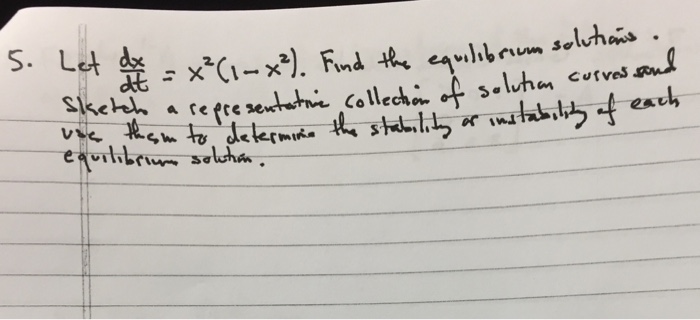 5. Let dx/dt = x²(1-x²). Find the equilibrium solutions.
Sketch a representative collection of solution curves and
use them to determine the stability or instability of each
equilibrium solution.